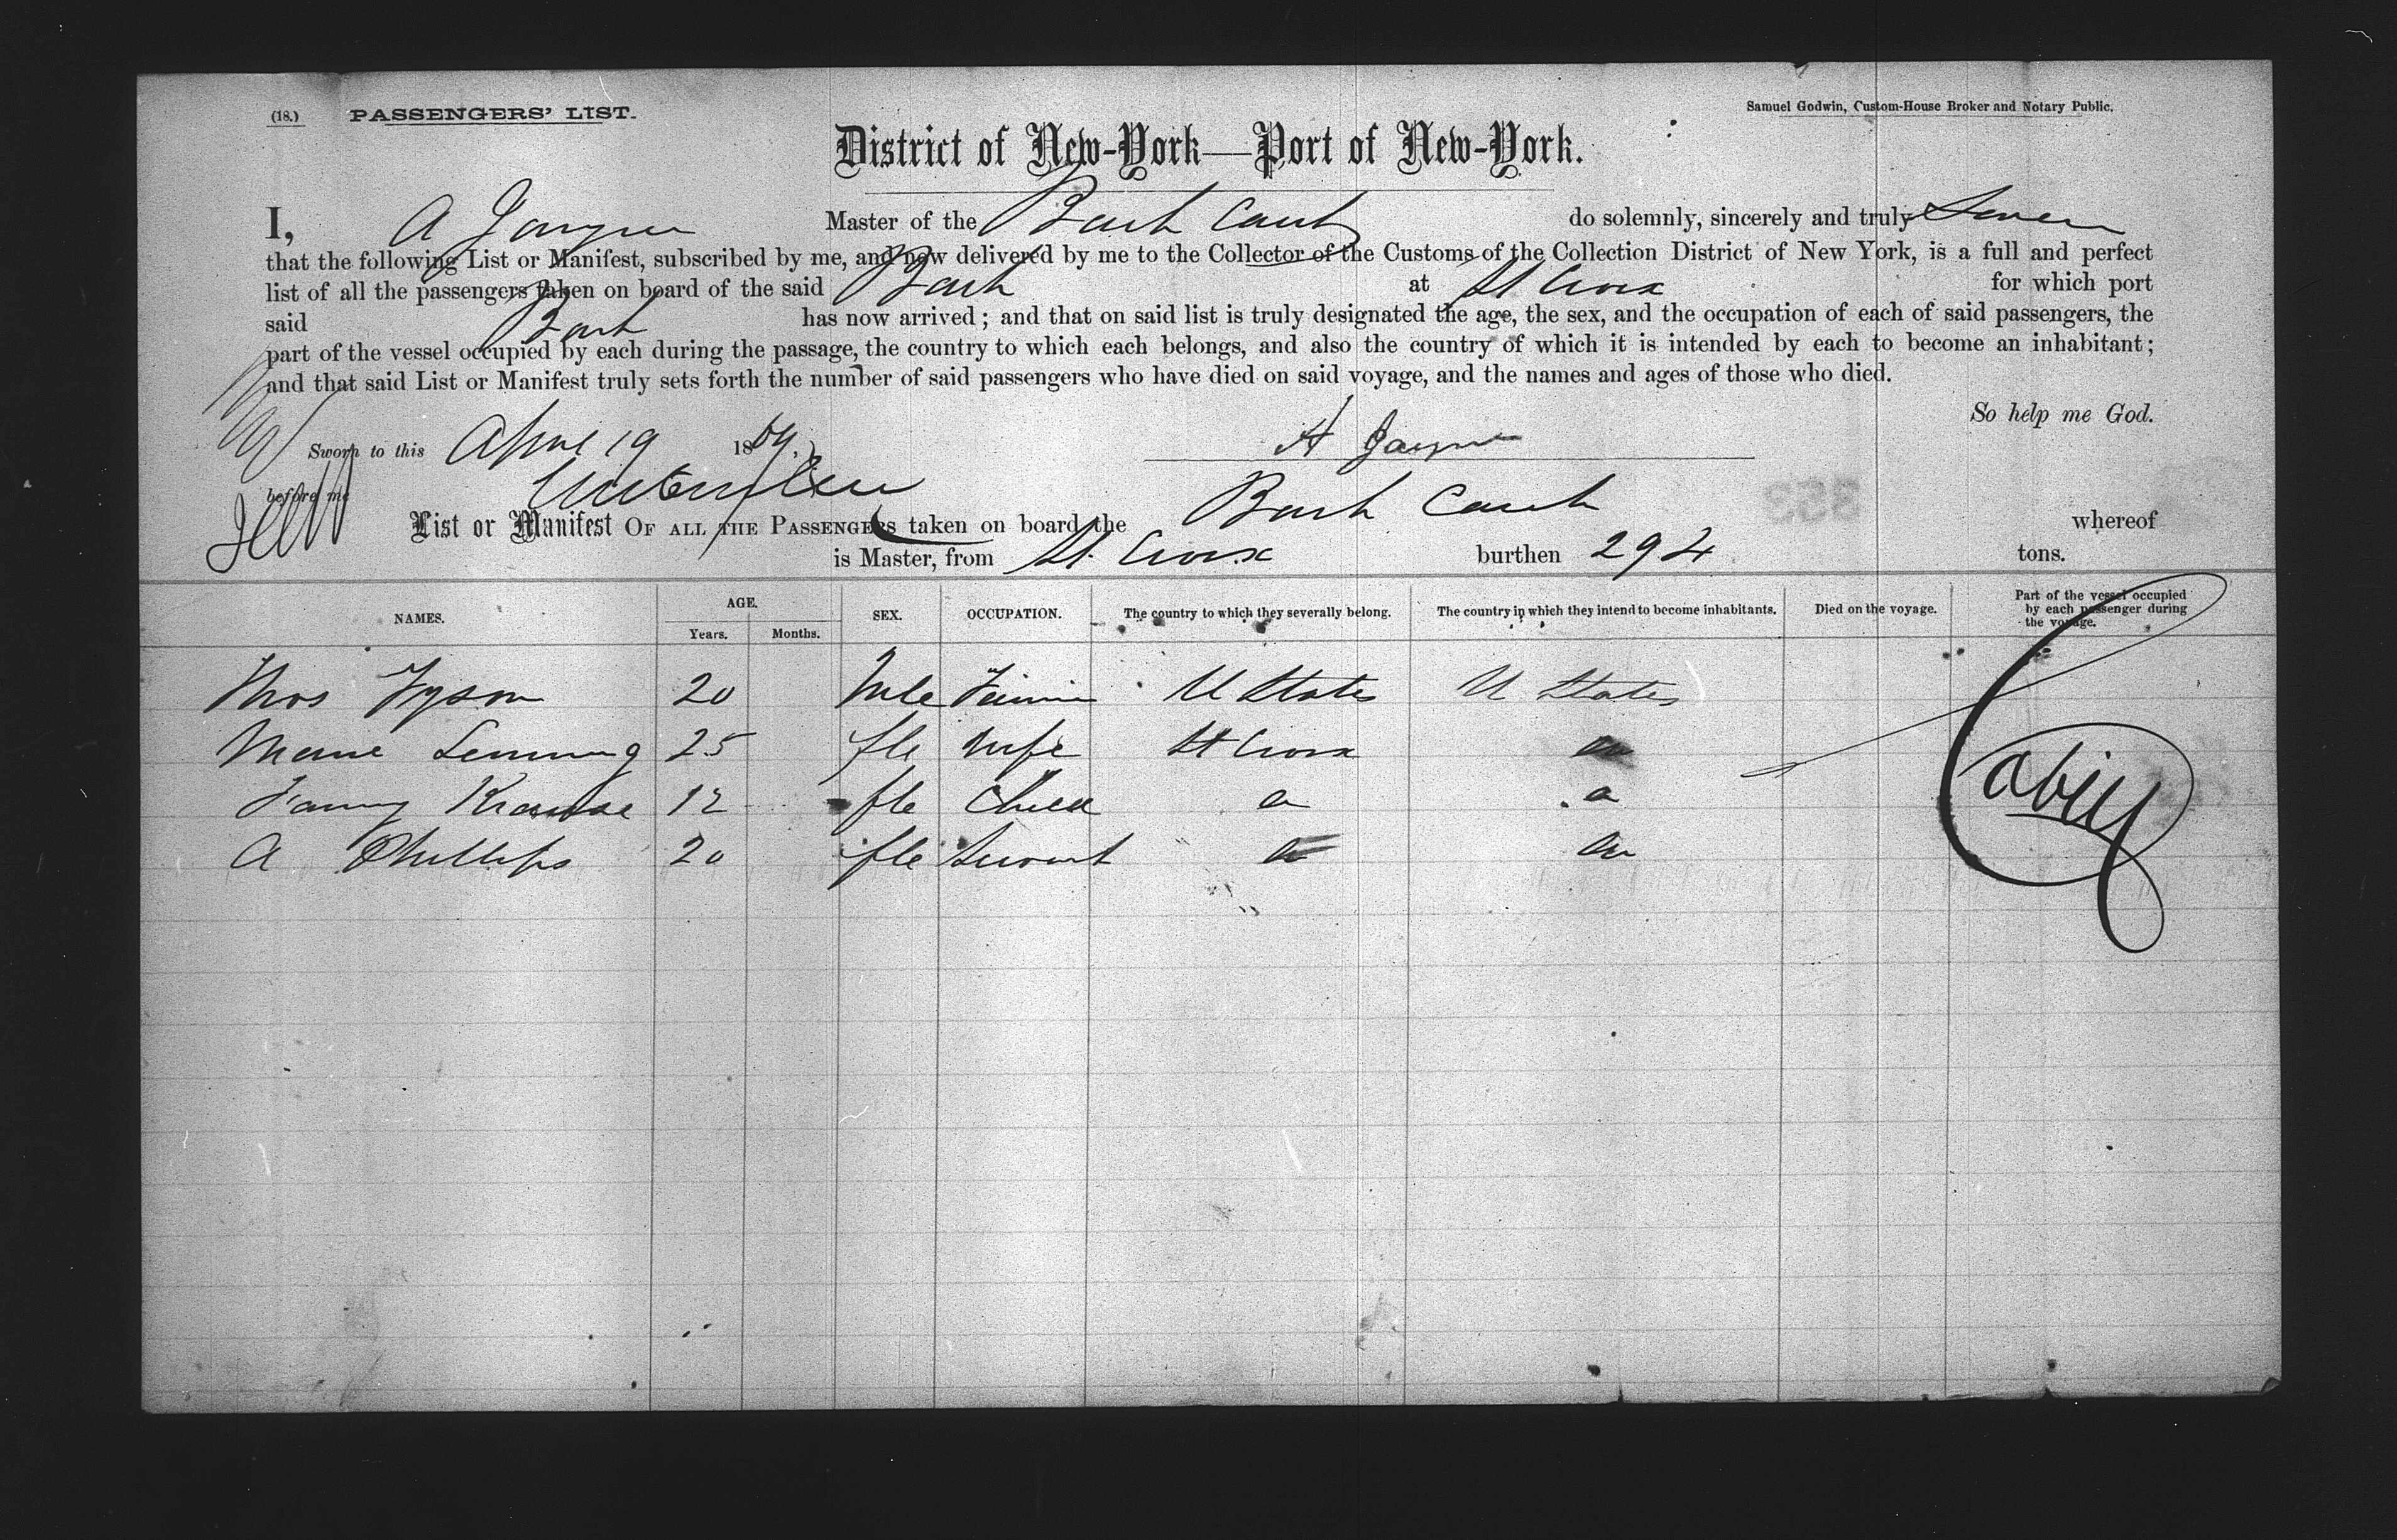 (18.) PASSENGERS' LIST.
Samuel Godwin, Custom-House Broker and Notary Public.
District of New-York—Port of New-York.
I, A Jayne Master of the Bark Carib do solemnly, sincerely and truly Swear
that the following List or Manifest, subscribed by me, and now delivered by me to the Collector of the Customs of the Collection District of New York, is a full and perfect
list of all the passengers taken on board of the said Bark at St Croix for which port
said Bark has now arrived; and that on said list is truly designated the age, the sex, and the occupation of each of said passengers, the
part of the vessel occupied by each during the passage, the country to which each belongs, and also the country of which it is intended by each to become an inhabitant;
and that said List or Manifest truly sets forth the number of said passengers who have died on said voyage, and the names and ages of those who died.
So help me God.
Sworn to this April 19 1889. A Jayne
before me
List or Manifest OF ALL THE PASSENGERS taken on board the Bark Carib whereof
is Master, from St Croix burthen 294 tons.
NAMES. AGE. Years. Months. SEX. OCCUPATION. The country to which they severally belong. The country in which they intend to become inhabitants. Died on the voyage. Part of the vessel occupied by each passenger during the voyage.
Thos Tyson 20 Mle U States U States
Lemming 25 fle Wife St Croix
Fanny Krause 12 fle Child
A Phillips 20 fle Servant
Cabin